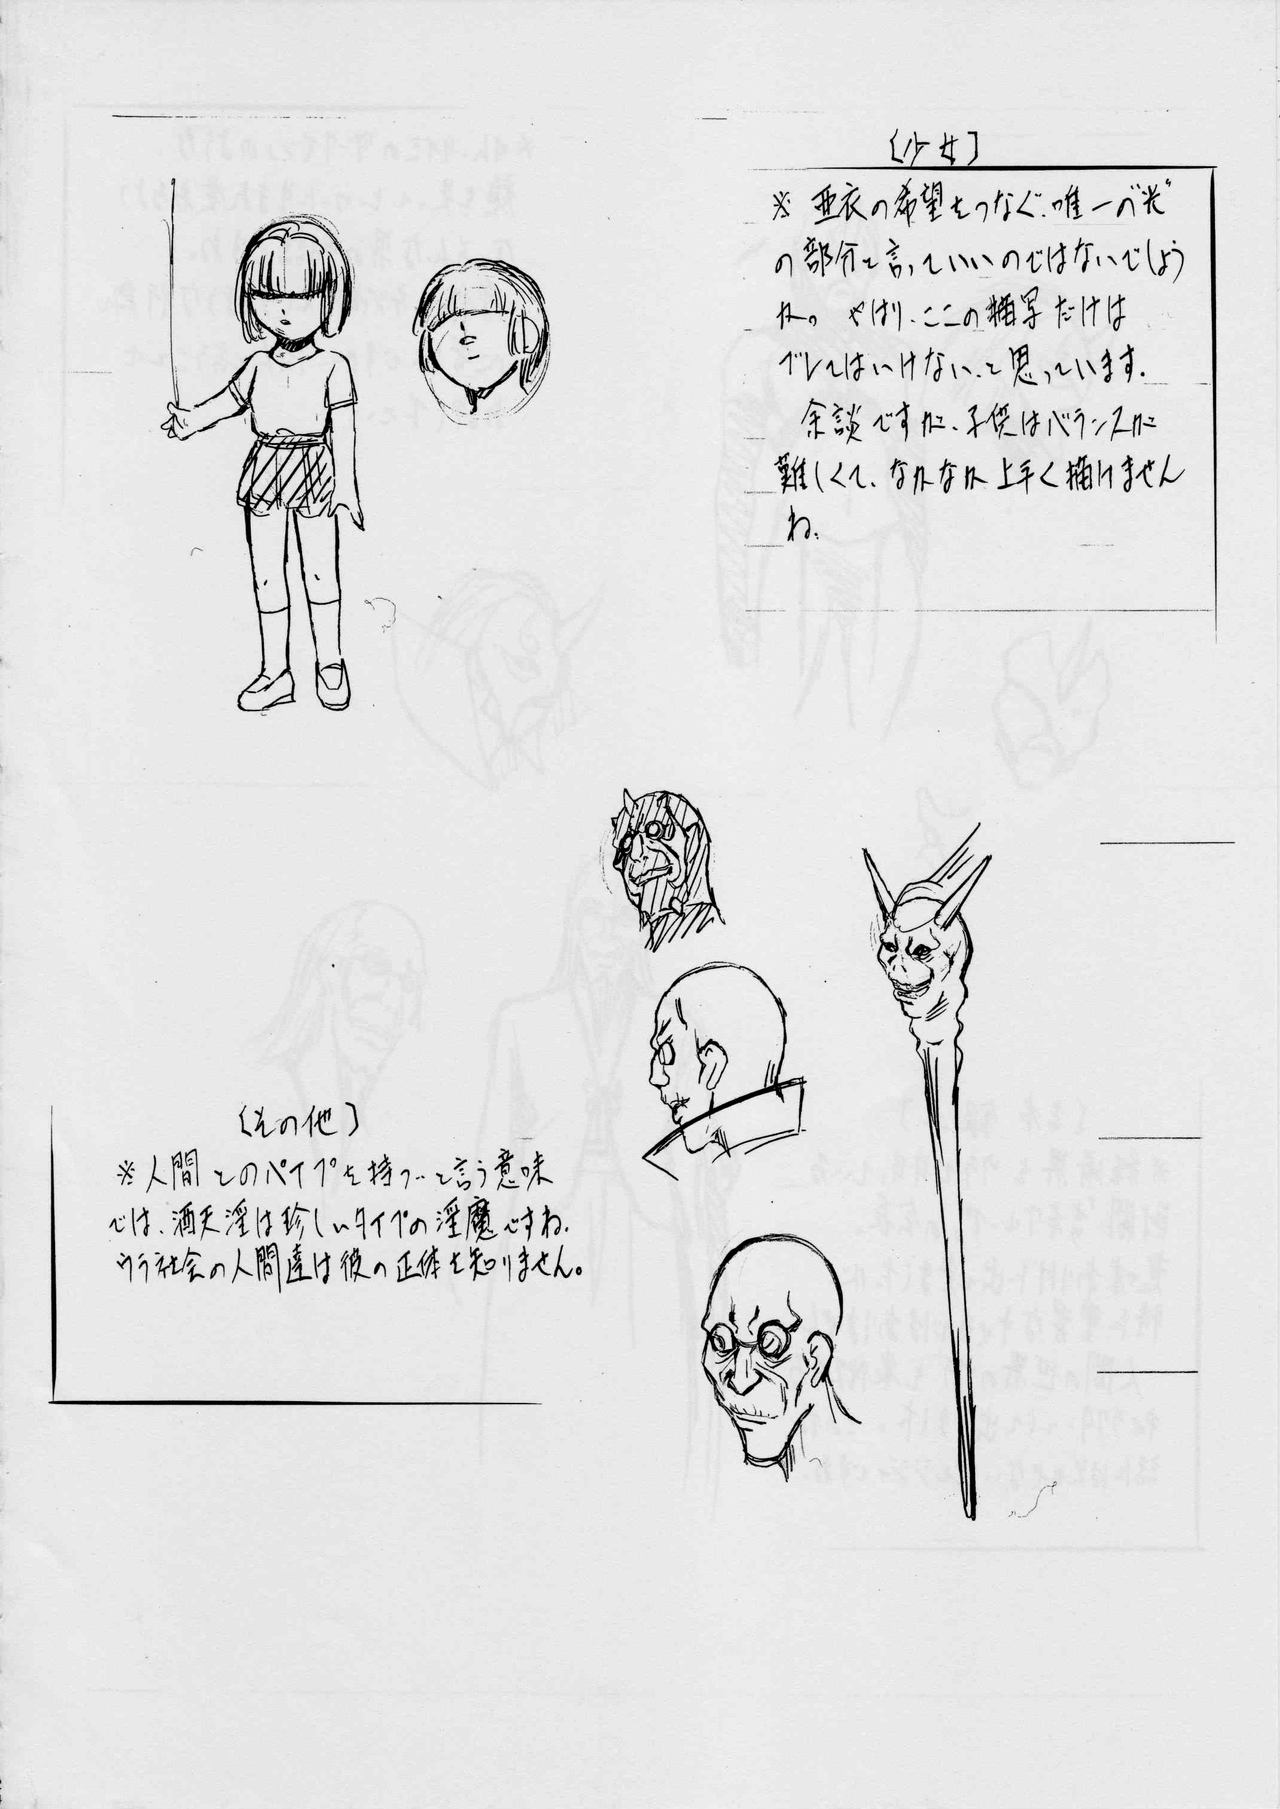 〔少女〕
※ 亜衣の希望をつなぐ、唯一の"光"
の部分と言っていいのではないでしょう
か。 やはり、ここの描写だけは
ブレてはいけない、と思っています。
余談ですが、子供はバランスが
難しくて、なかなか上手く描けません
ね。
〔その他〕
※人間とのパイプを持つ…と言う意味
では、酒天淫は珍しいタイプの淫魔ですね。
ウラ社会の人間達は彼の正体を知りません。